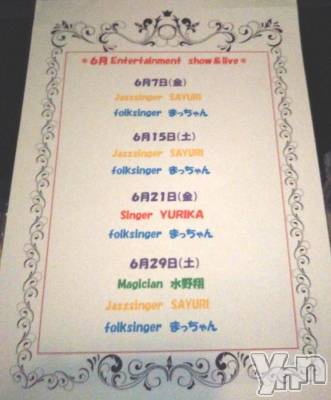 *6月 Entertainment show & live*
6月7日(金)
Jazzsinger SAYURI
folksinger まっちゃん
6月15日(土)
Jazzsinger SAYURI
folksinger まっちゃん
6月21日(金)
Singer YURIKA
folksinger まっちゃん
6月29日(土)
Magician 水野翔
Jazzsinger SAYURI
folksinger まっちゃん